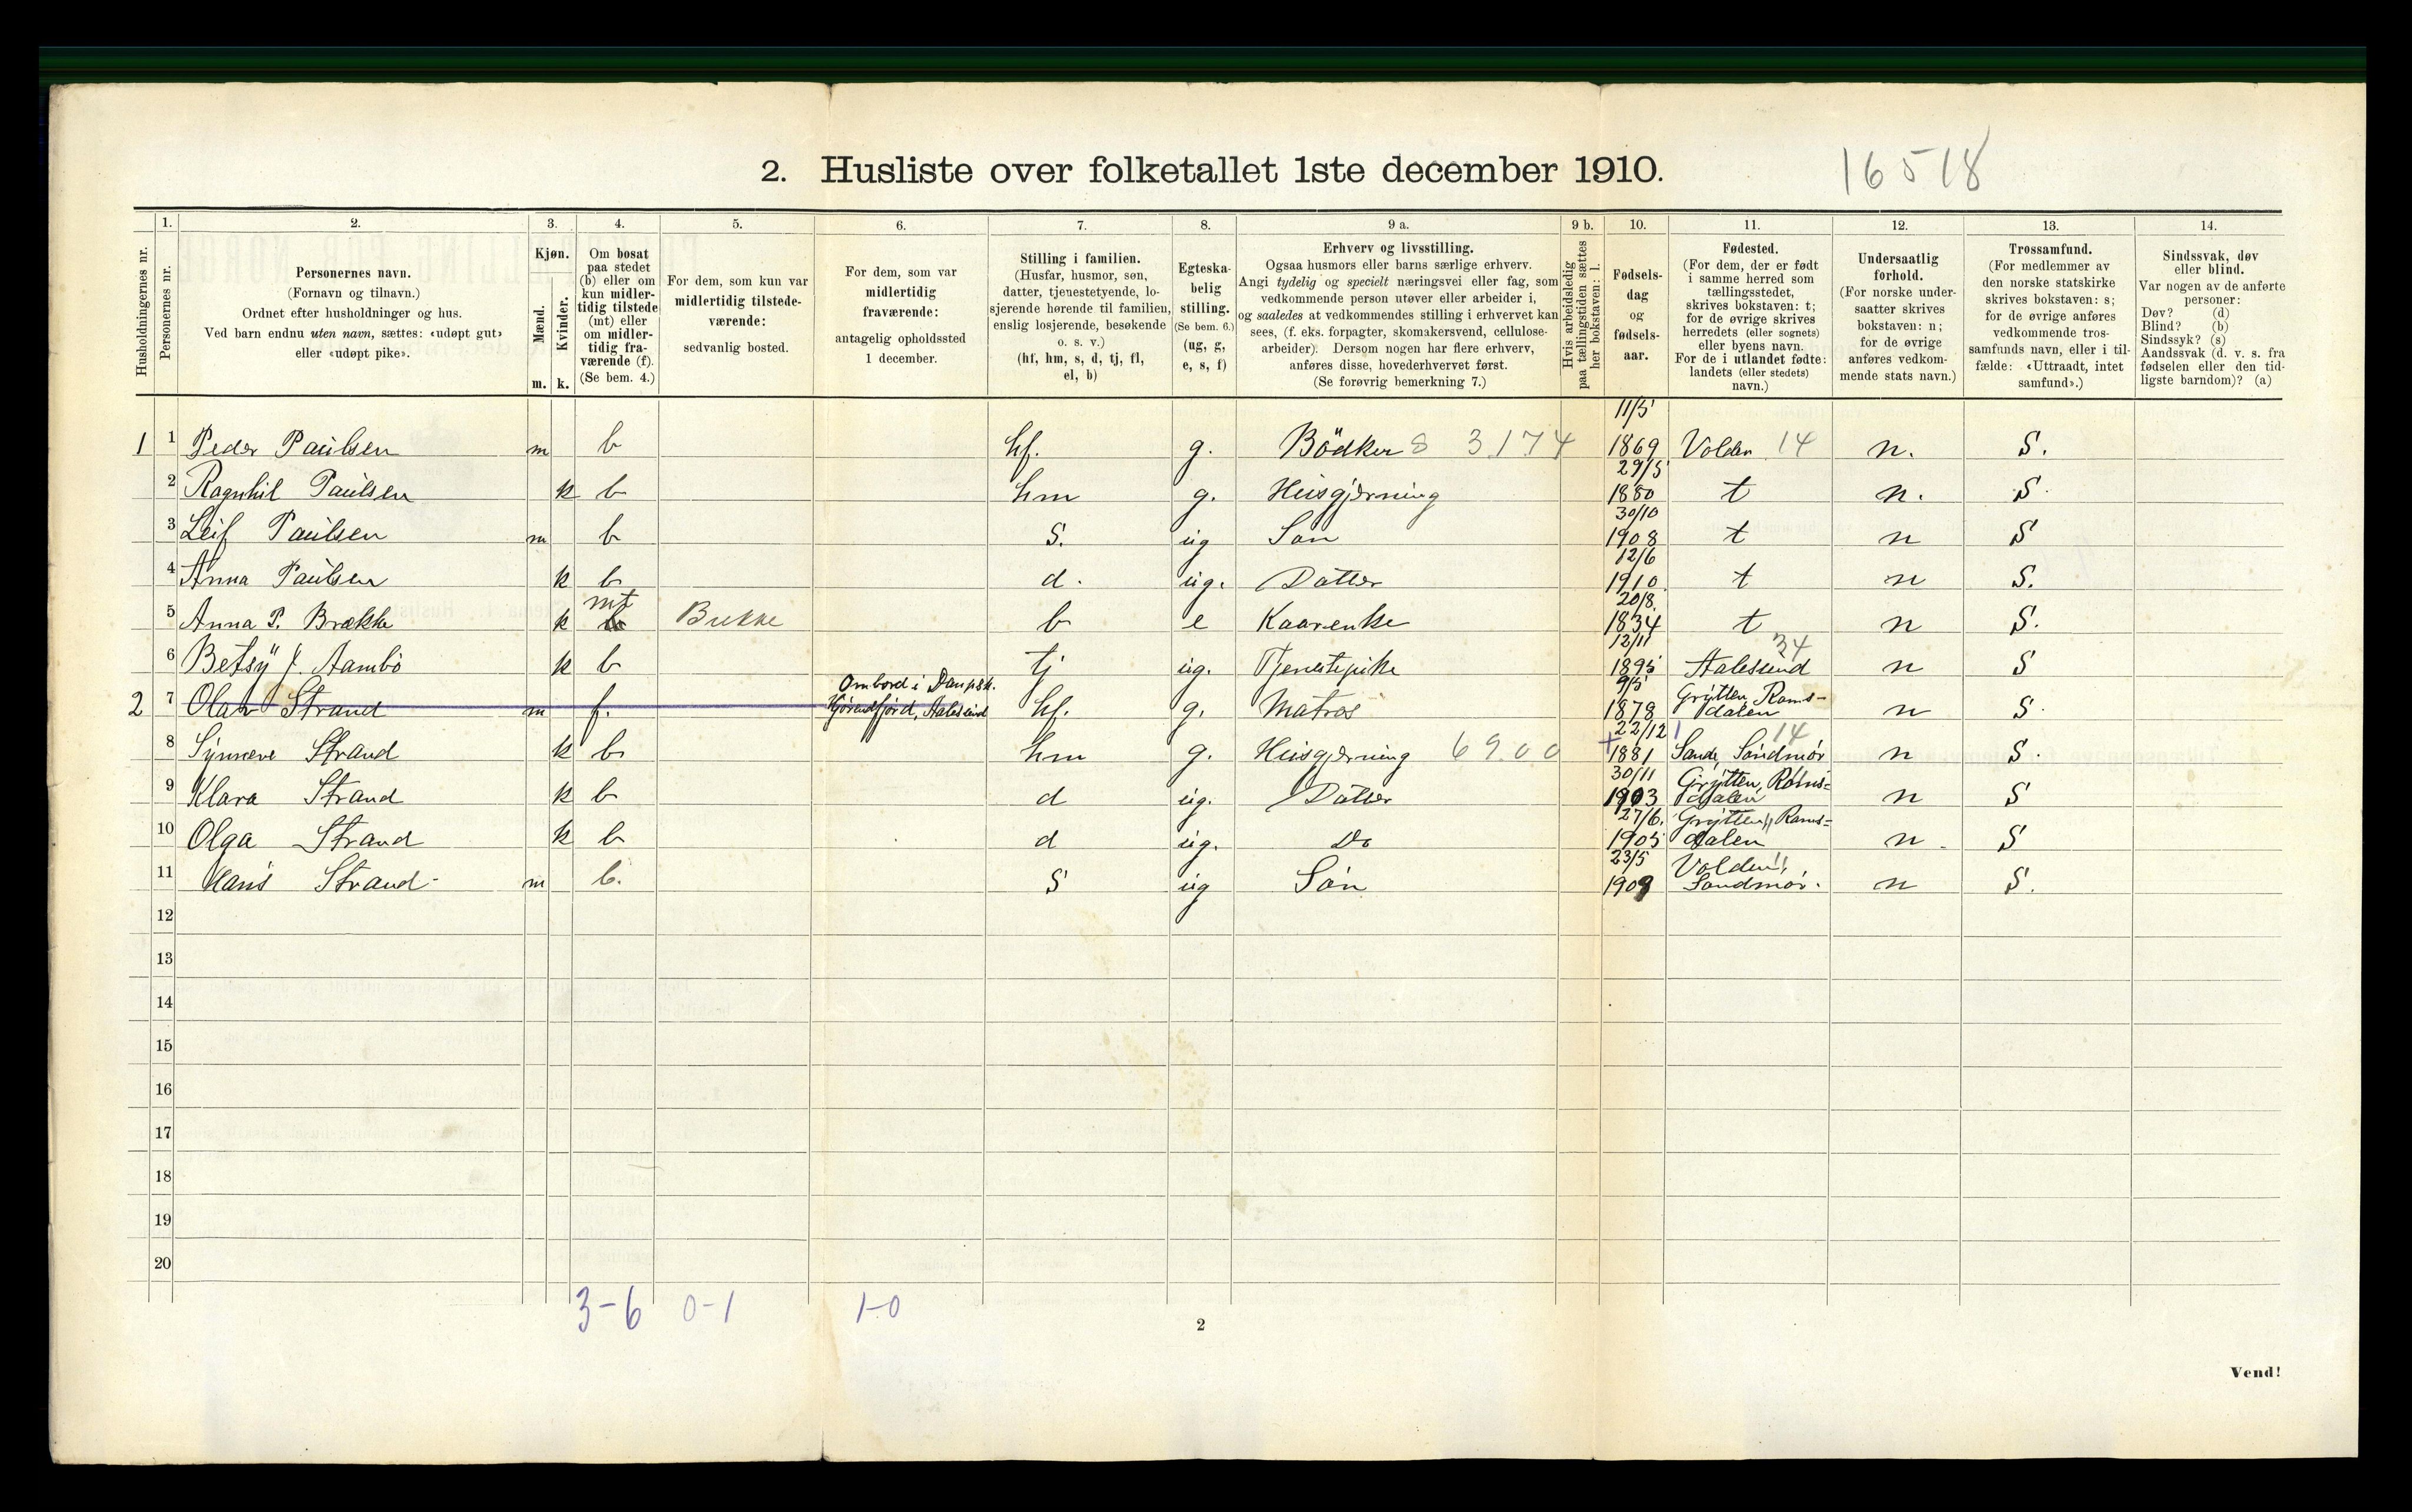 16518
2. Husliste over folketallet 1ste december 1910.
Husholdningernes nr.
1. Personernes nr.
2. Personernes navn. (Fornavn og tilnavn.) Ordnet efter husholdninger og hus. Ved barn endnu uten navn, sættes: «udøpt gut» eller «udøpt pike».
3. Kjøn. Mænd. m. Kvinder. k.
4. Om bosat paa stedet (b) eller om kun midlertidig tilstede (mt) eller om midlertidig fraværende (f). (Se bem. 4.)
5. For dem, som kun var midlertidig tilstedeværende: sedvanlig bosted.
6. For dem, som var midlertidig fraværende: antagelig opholdssted 1 december.
7. Stilling i familien. (Husfar, husmor, søn, datter, tjenestetyende, losjerende hørende til familien, enslig losjerende, besøkende o. s. v.) (hf, hm, s, d, tj, fl, el, b)
8. Egteskabelig stilling. (Se bem. 6.) (ug, g, e, s, f)
9 a. Erhverv og livsstilling. Ogsaa husmors eller barns særlige erhverv. Angi tydelig og specielt næringsvei eller fag, som vedkommende person utøver eller arbeider i, og saaledes at vedkommendes stilling i erhvervet kan sees, (f. eks. forpagter, skomakersvend, cellulosearbeider). Dersom nogen har flere erhverv, anføres disse, hovederhvervet først. (Se forøvrig bemerkning 7.)
9 b. Hvis arbeidsledig paa tællingstiden sættes her bokstaven: l.
10. Fødselsdag og fødselsaar.
11. Fødested. (For dem, der er født i samme herred som tællingsstedet, skrives bokstaven: t; for de øvrige skrives herredets (eller sognets) eller byens navn. For de i utlandet fødte: landets (eller stedets) navn.)
12. Undersaatlig forhold. (For norske undersaatter skrives bokstaven: n; for de øvrige anføres vedkommende stats navn.)
13. Trossamfund. (For medlemmer av den norske statskirke skrives bokstaven: s; for de øvrige anføres vedkommende trossamfunds navn, eller i tilfælde: «Uttraadt, intet samfund».)
14. Sindssvak, døv eller blind. Var nogen av de anførte personer: Døv? (d) Blind? (b) Sindssyk? (s) Aandssvak (d. v. s. fra fødselen eller den tidligste barndom)? (a)
1 1 Peder Paulsen m b hf. g. Bödker 8 3174 11/5 1869 Volden 14 n. S.
2 Ragnhil Paulsen k b hm g. Husgjerning 29/5 1880 t n. S.
3 Leif Paulsen m b S. ug Sön 30/10 1908 t n S
4 Anna Paulsen k b d. ug. Datter 12/6 1910. t n S.
5 Anna P. Brække k mt Brekke b e Kaarenke 20/8. 1834 t n S.
6 Betsy J. Aambö k b tj ug. Tjenestepike 13/11 1895 Aalesund 34 n S
2 7 Olav Strand m f. Ombord i Dampsk. Hjörundfjord, Aalesund hf. g. Matros 9/5 1878 Grytten, Romsdalen n S
8 Synneve Strand k b hm g. Husgjerning 6900 22/12 1881 Sande, Söndmör 14 n S.
9 Klara Strand k b d ug. Datter 30/11 1903 Grytten, Romsdalen n S
10 Olga Strand k b d ug. Do 27/6. 1905 Grytten, Romsdalen n S
11 Hans Strand m b. S ug Sön 23/5 1909 Volden, Söndmör. n S.
12
13
14
15
16
17
18
19
20
3-6 0-1 1-0
2
Vend!